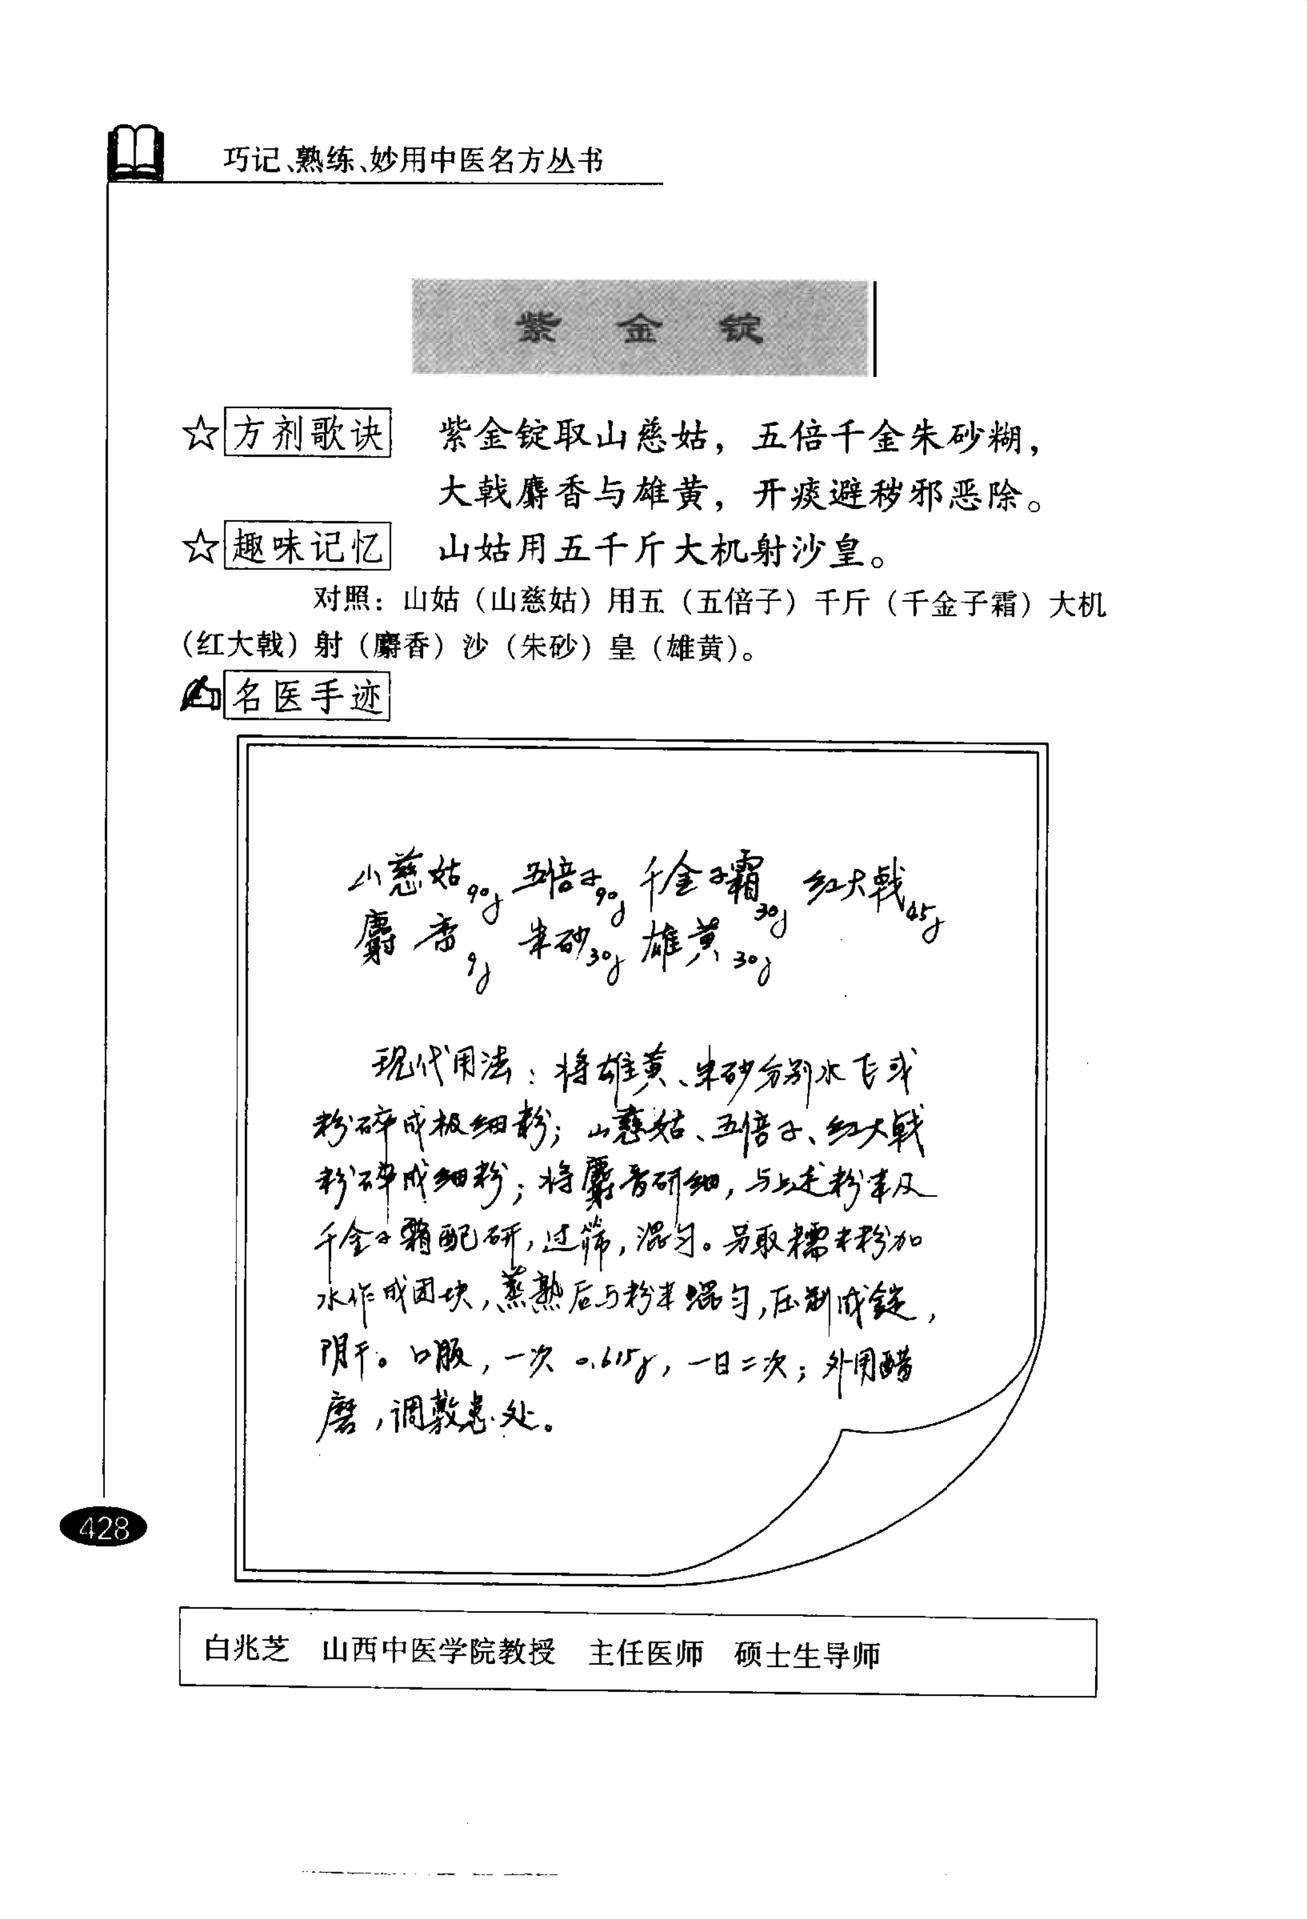 巧记、熟练、妙用中医名方丛书
紫金锭
☆方剂歌诀 紫金锭取山慈姑，五倍千金朱砂糊，
大戟麝香与雄黄，开痰避秽邪恶除。
☆趣味记忆 山姑用五千斤大机射沙皇。
对照：山姑（山慈姑）用五（五倍子）千斤（千金子霜）大机
（红大戟）射（麝香）沙（朱砂）皇（雄黄）。
名医手迹
山慈姑90g 五倍子90g 千金子霜30g 红大戟45g
麝香9g 朱砂30g 雄黄30g
现代用法：将雄黄、朱砂分别水飞或
粉碎成极细粉；山慈姑、五倍子、红大戟
粉碎成细粉；将麝香研细，与上述粉末及
千金子霜配研，过筛，混匀。另取糯米粉加
水作成团块，蒸熟后与粉末混匀，压制成锭，
阴干。口服，一次0.615g，一日二次；外用醋
磨，调敷患处。
428
白兆芝 山西中医学院教授 主任医师 硕士生导师